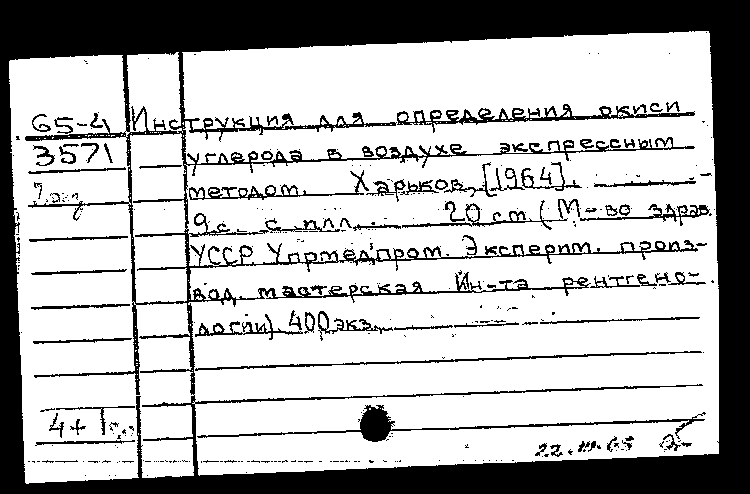 65-4 Инструкция для определения окиси
3571 углерода в воздухе экспрессным
методом. Харьков, [1964].
9 с. с илл. 20 см (М-во здрав.
УССР Упрмедпром. Эксперим. произ-
вод. мастерская Ин-та рентгено-
логии) 400 экз.
4+1
22.III.65